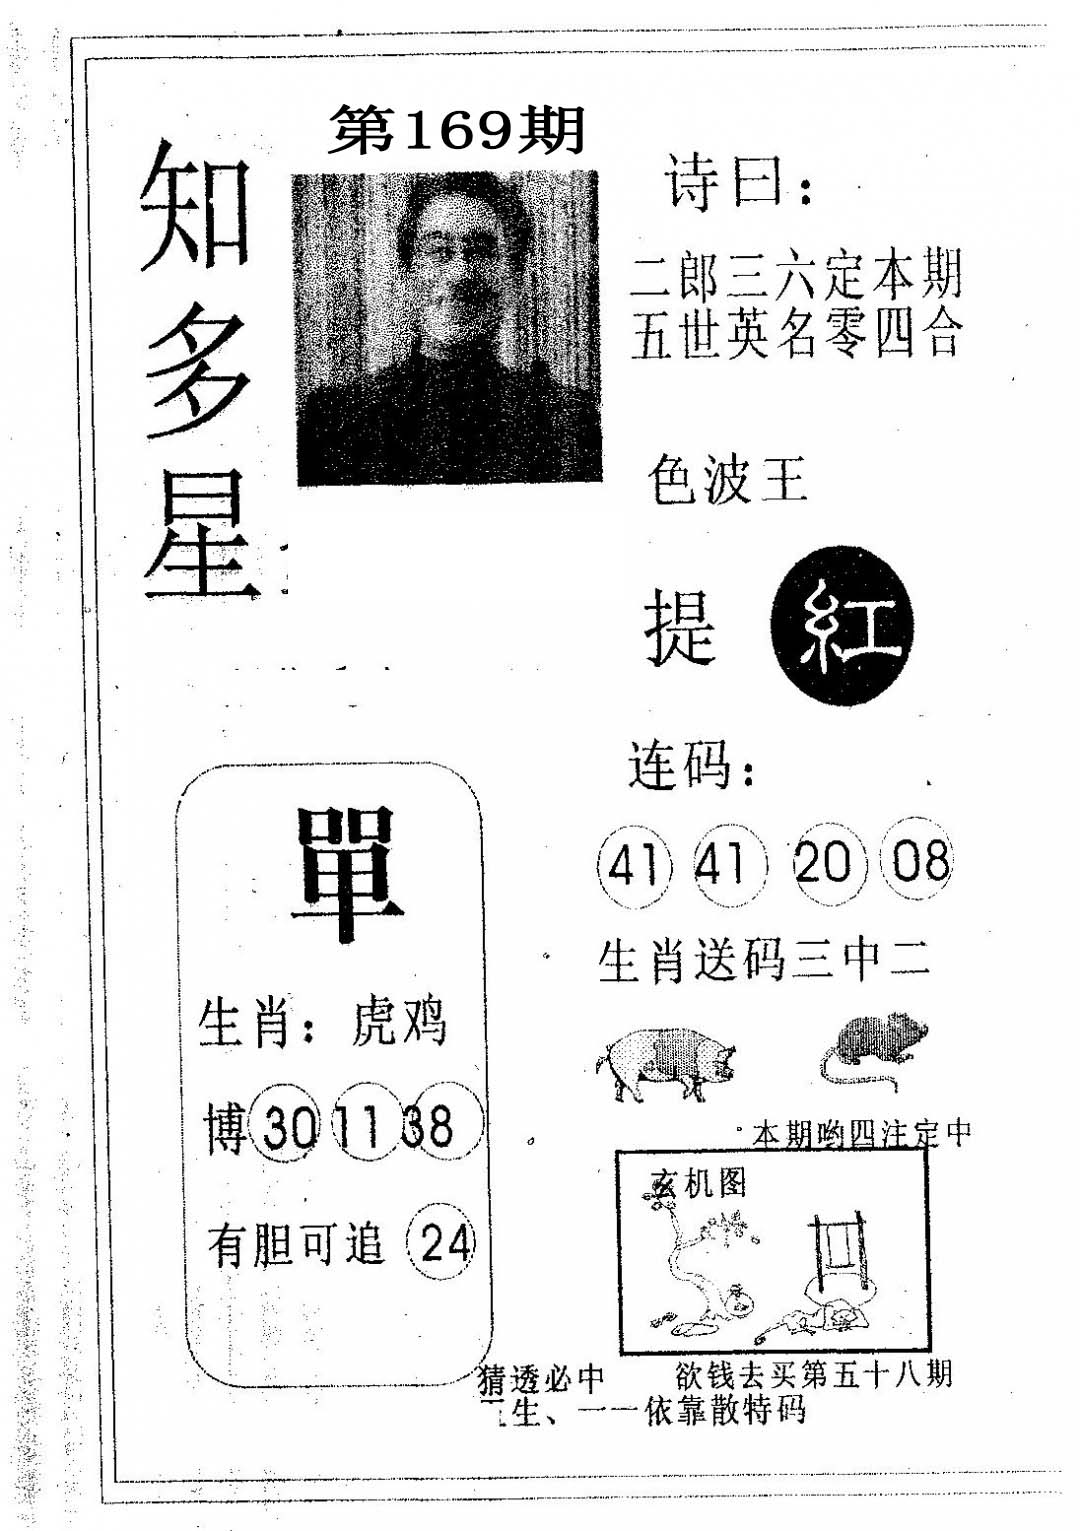 第169期
知多星
诗曰：
二郎三六定本期
五世英名零四合
色波王
提 紅
连码：
41 41 20 08
生肖送码三中二
單
生肖：虎鸡
博 30 11 38
有胆可追 24
本期哟四注定中
玄机图
猜透必中 欲钱去买第五十八期
生、一一依靠散特码